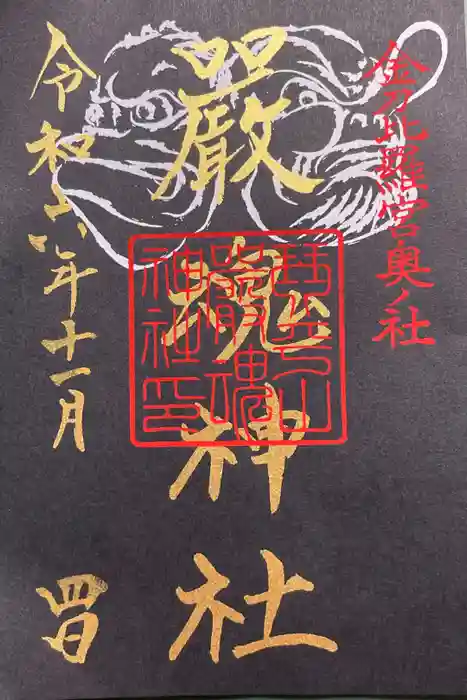 金刀比羅宮奥ノ社
嚴魂神社
琴平山
嚴魂
神社印
令和六年十一月
四日